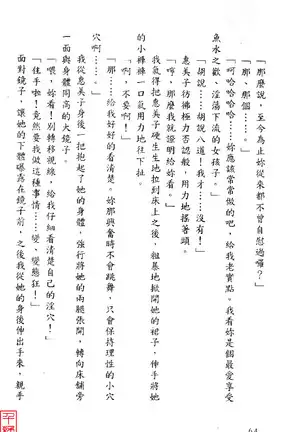 「那麼說，至今為止妳從來都不曾自慰過囉？」
「那、那個……。」
「呵哈哈哈……妳應該常常做的吧，給我老實點。我看妳是個最愛享受
魚水之歡、淫蕩下流的女孩子。」
「胡說……胡說八道！我才……沒有！」
惠美子彷彿極力否認般，用力地搖著頭。
「哼，那麼我就證明給妳看。」
我氣得把惠美子硬生生地拉到床上之後，粗暴地掀開她的裙子，伸手將她
的小褲褲一口氣用力地往下扯。
「啊，不要啊！」
「那……給我好好的看清楚。妳那興奮時不會跳舞，只會保持理性的小穴
穴啊……。」
我從惠美子身後一把抱起了她的身體，強行將她的兩腿張開，轉向床舖旁
一面與身體同高的大鏡子。
「喂，妳看！別轉移視線，給我仔細看清楚自己的淫穴！」
「住手啦！竟然要我做這種事情……變、變態狂！」
面對鏡子，讓她的下體曝露在鏡子前，之後我從她的身後伸出手來，親手
64